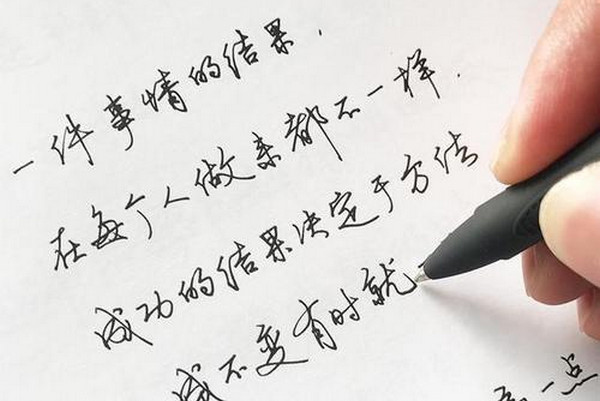 一件事情的结果.
在每个人做来都不一样.
成功的结果决定于方法
成不变有时就
一点